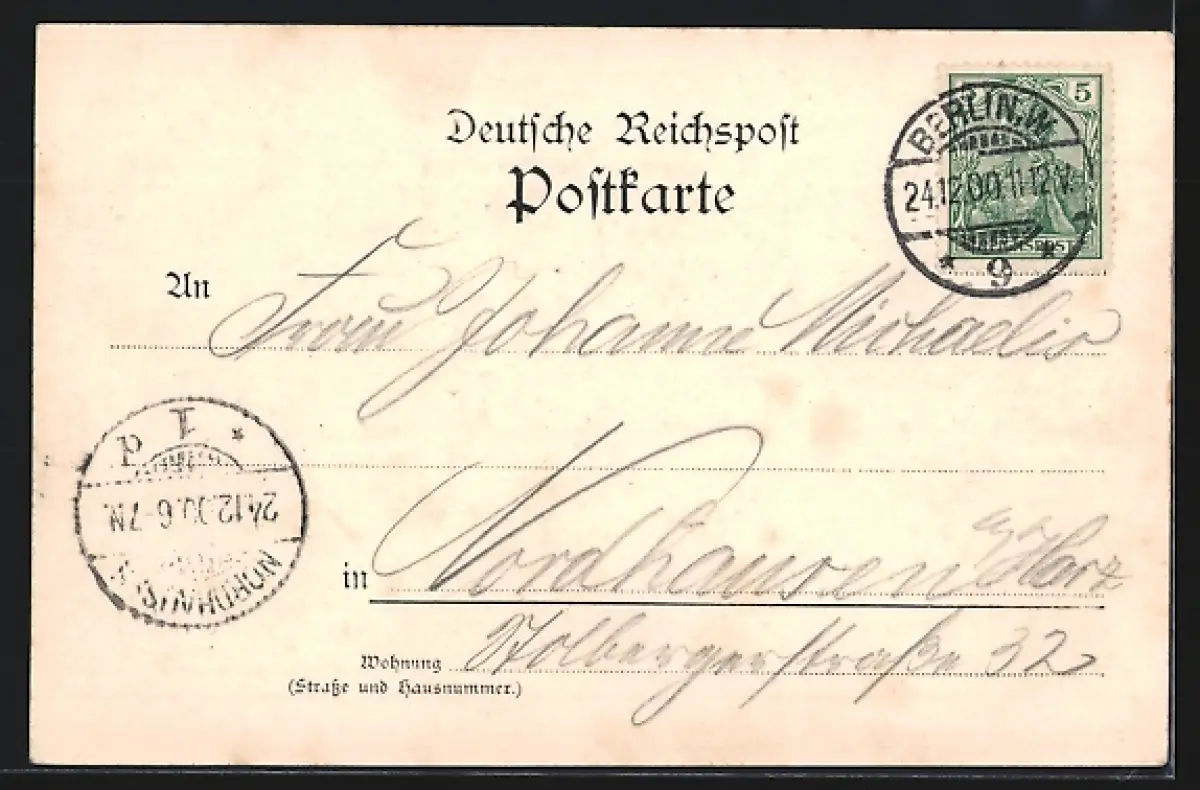 Deutsche Reichspost
Postkarte
5
BERLIN, W.
24.12.00.11-12V.
* 9 *
An Frau Johanne Michaelis
in Nordhausen a/Harz
Wohnung Stolbergerstraße 32
(Straße und Hausnummer.)
NORDHAUSEN
24.12.00.6-7N.
* 1 d